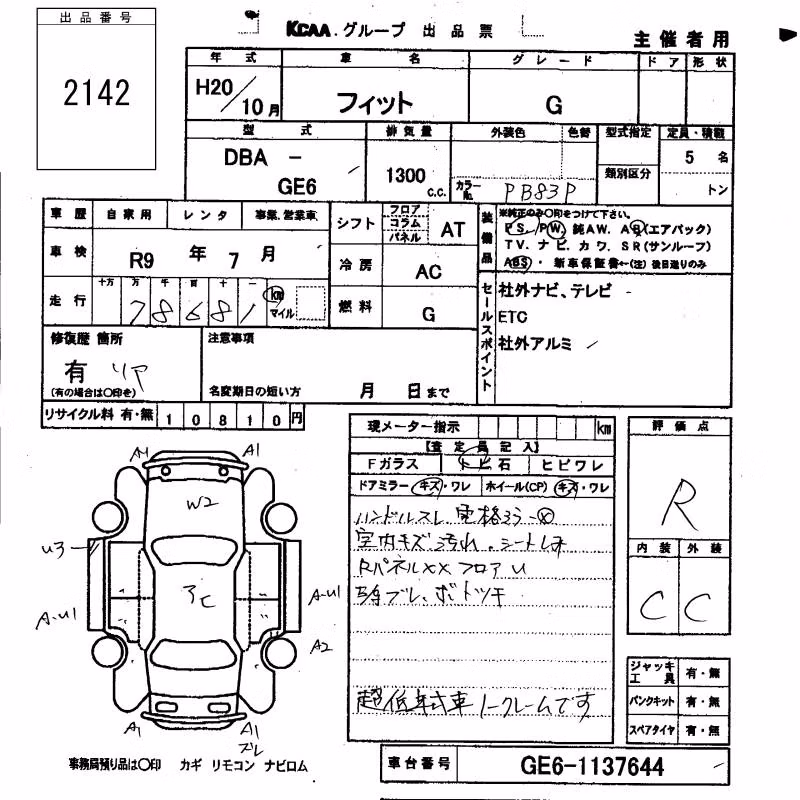 出品番号
2142
KCAA.グループ 出品票
主催者用
年式 車名 グレード ドア 形状
H20/10月 フィット G
型式 排気量 外装色 色替 型式指定 定員・積載
DBA - GE6
1300 C.C.
カラーNo. PB83P
類別区分
5 名
トン
車歴 自家用 レンタ 事業、営業車
車検 R9 年 7 月
走行 十万 万 千 百 十 一
78681 km マイル
シフト フロア コラム パネル AT
冷房 AC
燃料 G
装備品
※純正のみ〇印をつけて下さい。
PS. PW. 純AW. AB(エアバック)
TV. ナビ. カワ. SR(サンルーフ)
ABS・ 新車保証書←(注)後日送りのみ
セールスポイント
社外ナビ、テレビ
ETC
社外アルミ
修復歴 箇所
有 リア
(有の場合は〇印を)
注意事項
名変期日の短い方 月 日まで
リサイクル料 有・無 10810円
現メーター指示 km
【査定員記入】
Fガラス トビ石 ヒビワレ
ドアミラー キズ・ワレ ホイール(CP) キズ・ワレ
ハンドルスレ
室内キズ 汚れ
Rパネルxx フロアU
超低年式車ノークレームです
評価点
R
内装 外装
C C
ジャッキ工具 有・無
パンクキット 有・無
スペアタイヤ 有・無
A1
A1
W2
U3
A-U1
A-U1
A2
A1
A1
事務局預り品は〇印 カギ リモコン ナビロム
車台番号 GE6-1137644